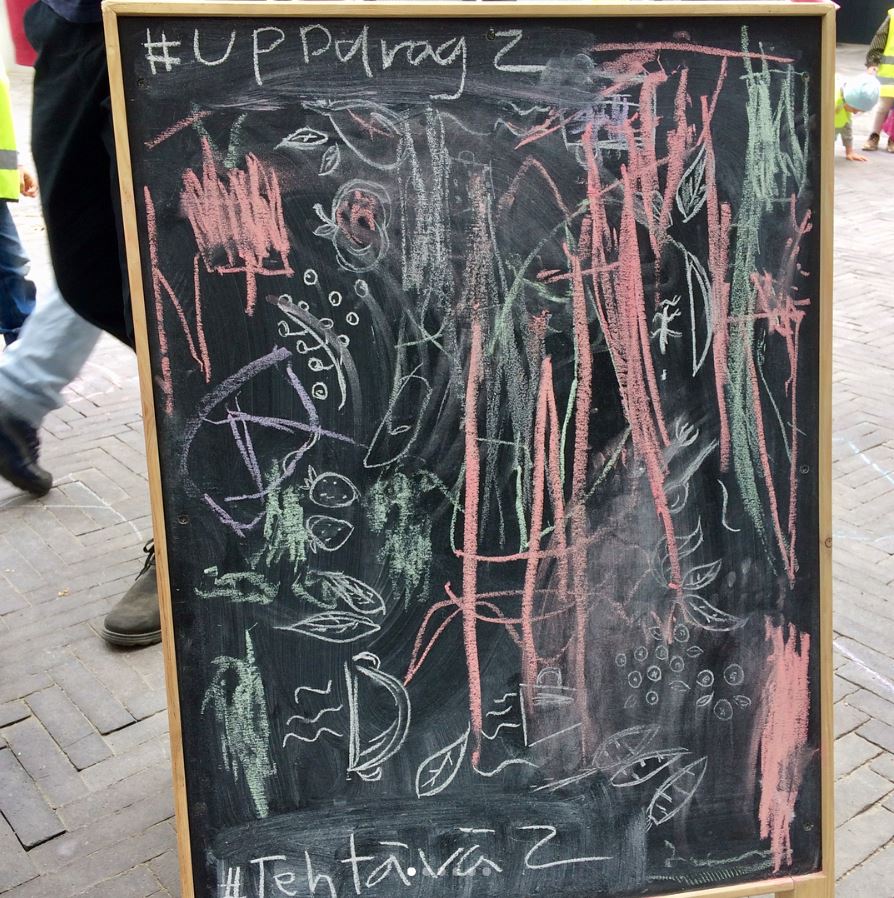 #Uppdrag 2
#Tehtävä 2